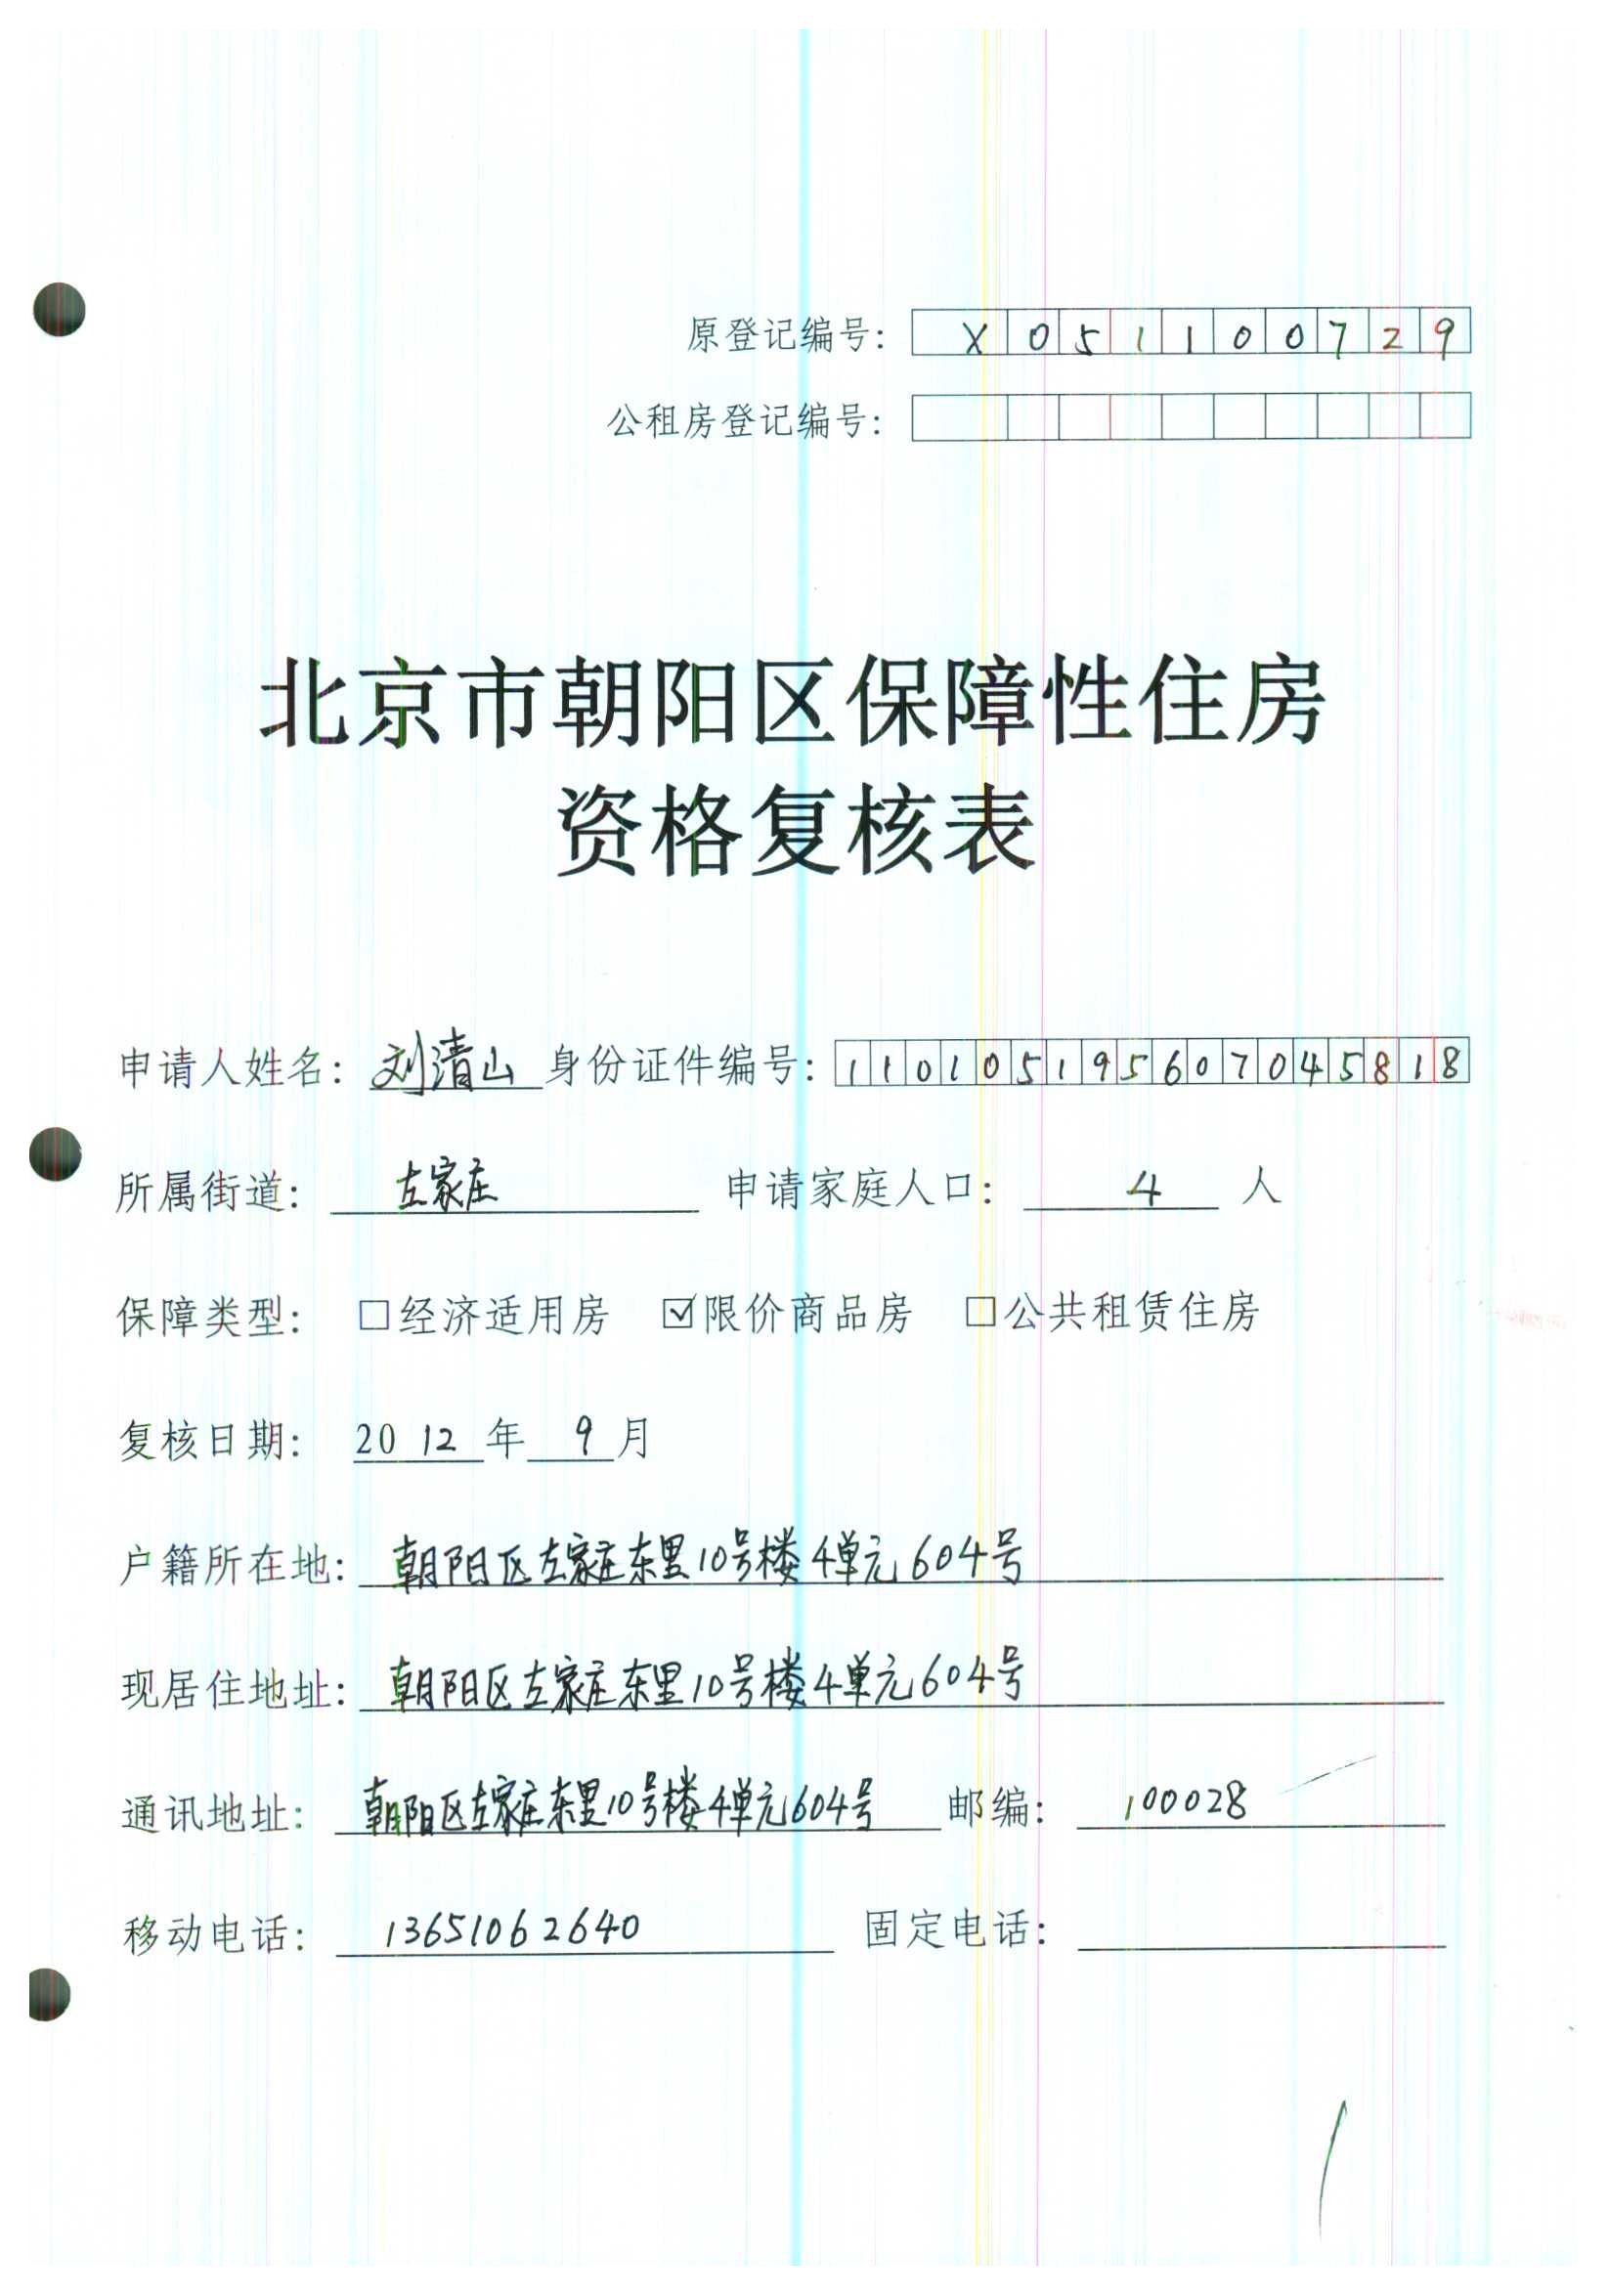 原登记编号: X051100729
公租房登记编号:
北京市朝阳区保障性住房
资格复核表
申请人姓名: 刘清山 身份证件编号: 110105195607045818
所属街道: 左家庄 申请家庭人口: 4 人
保障类型: □经济适用房 ☑限价商品房 □公共租赁住房
复核日期: 2012年 9月
户籍所在地: 朝阳区左家庄东里10号楼4单元604号
现居住地址: 朝阳区左家庄东里10号楼4单元604号
通讯地址: 朝阳区左家庄东里10号楼4单元604号 邮编: 100028
移动电话: 13651062640 固定电话: